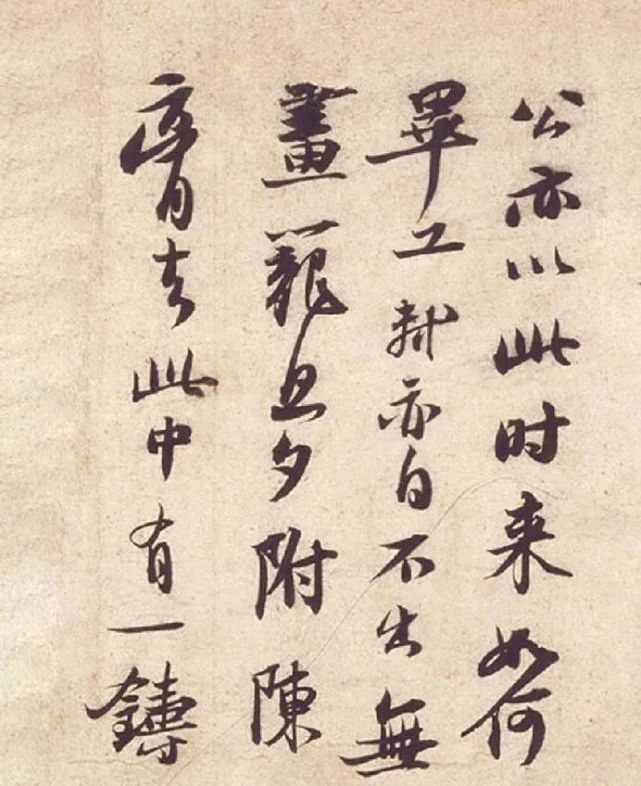 公亦以此时来如何
畢工軾亦自不出無
畫籠旦夕附陳
膏去此中有一鑄